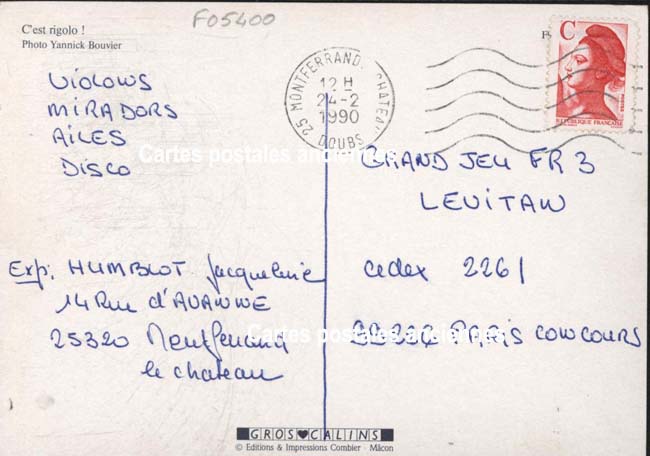 F05400
C'est rigolo !
Photo Yannick Bouvier
C
REPUBLIQUE FRANÇAISE
25 MONTFERRAND CHATEAU
12 H
24-2
1990
DOUBS
VIOLOWS
MIRADORS
AILES
DISCO
Cartes postales anciennes
GRAND JEU FR 3
LEVITAN
cedex 2261
PARIS CONCOURS
Exp: HUMBLOT Jacqueline
14 Rue d'AVANNE
25320 Montferrand
le chateau
Cartes postales anciennes
GROS CALINS
© Editions & Impressions Combier - Mâcon